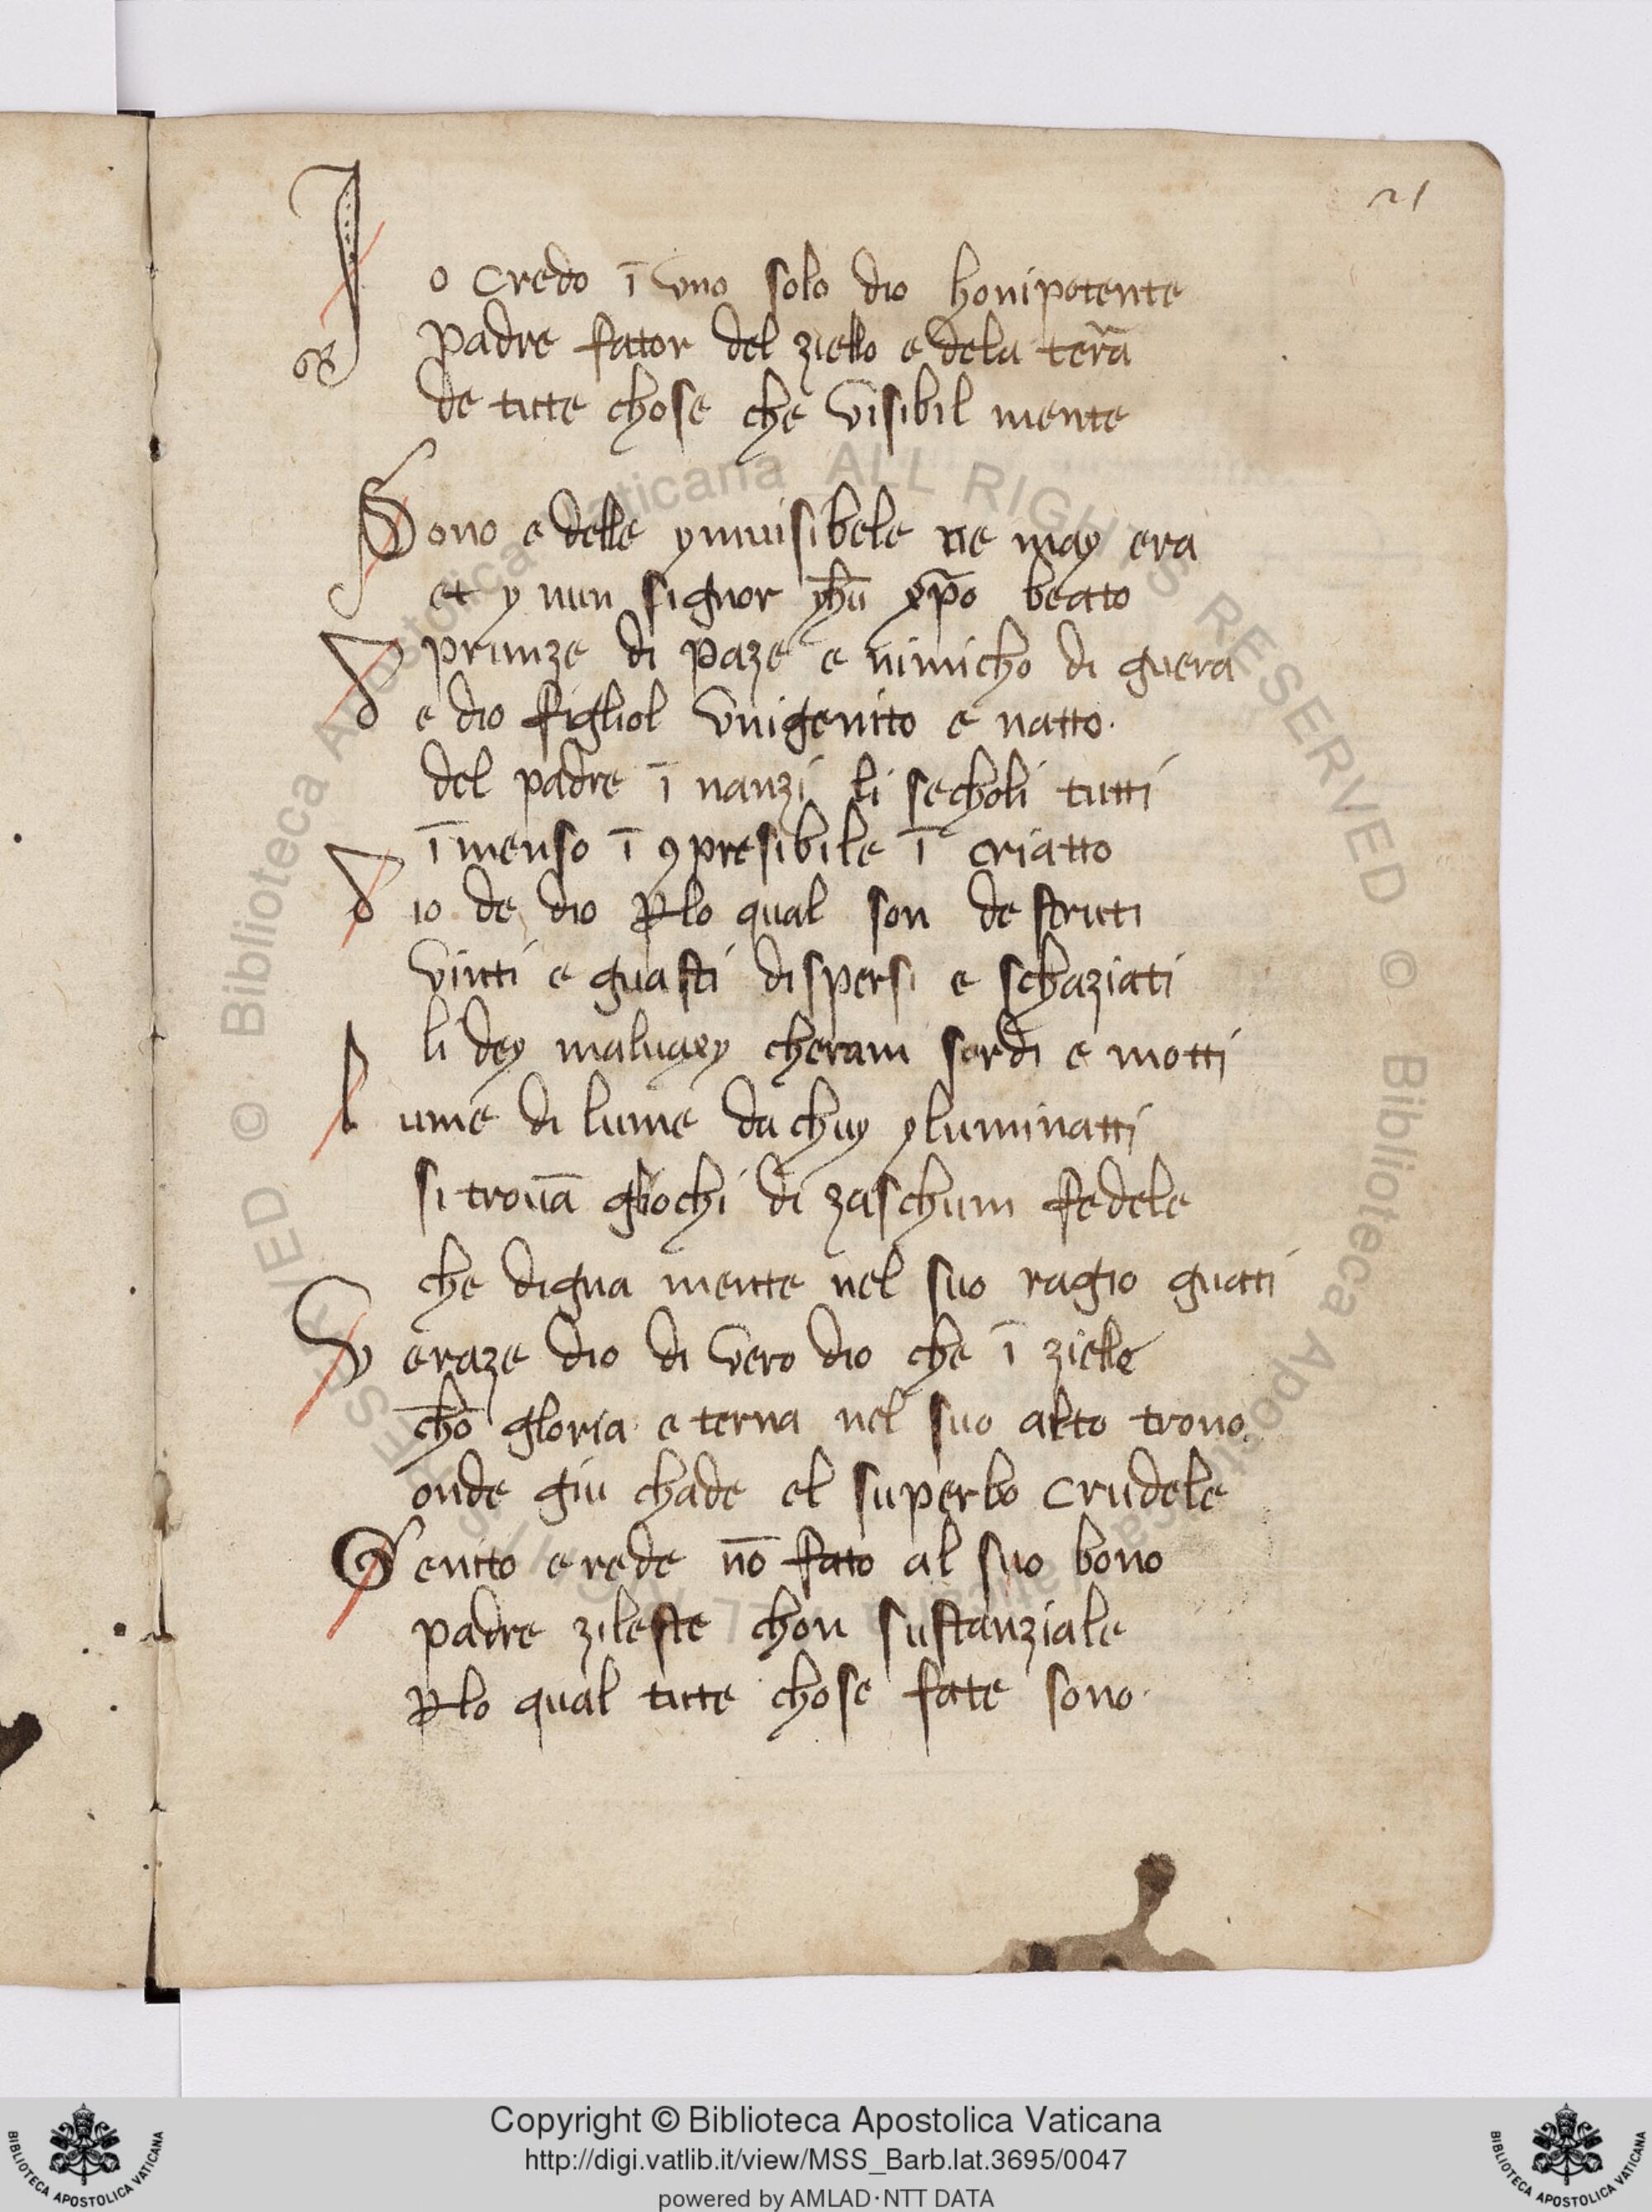 21
Jo credo ī uno solo dio honipotente
padre fator del ziello e dela tera̅
de tutte chose che visibil mente
Sono e delle ynuisibele ne may era
et y nun signor yhū xp̄o beato
prinze di paze e nimicho di guera
de dio figliol vnigenito e natto.
del padre ī nanzi li secholi tutti
īmenso ī ꝯpresibile ī criatto
dio de dio ꝑlo qual son destruti
vinti e guasti dispersi e schaziati
li dey maluaxy cheram sordi e motti
lume di lume da chuy yluminatti
si trouā gliochi di zaschum fedele
che digna mente nel suo ragio guatti
veraze dio di vero dio che ī zielle
chō gloria eterna nel suo alto trono.
onde giu chade el superbo crudele
Genito erede nō fato al suo bono
padre zileste chon sustanziale
ꝑlo qual tutte chose fate sono.
© Biblioteca Apostolica Vaticana ALL RIGHTS RESERVED © Biblioteca Apostolica Vaticana ALL RIGHTS RESERVED
Copyright © Biblioteca Apostolica Vaticana
http://digi.vatlib.it/view/MSS_Barb.lat.3695/0047
powered by AMLAD·NTT DATA
BIBLIOTECA APOSTOLICA VATICANA
BIBLIOTECA APOSTOLICA VATICANA